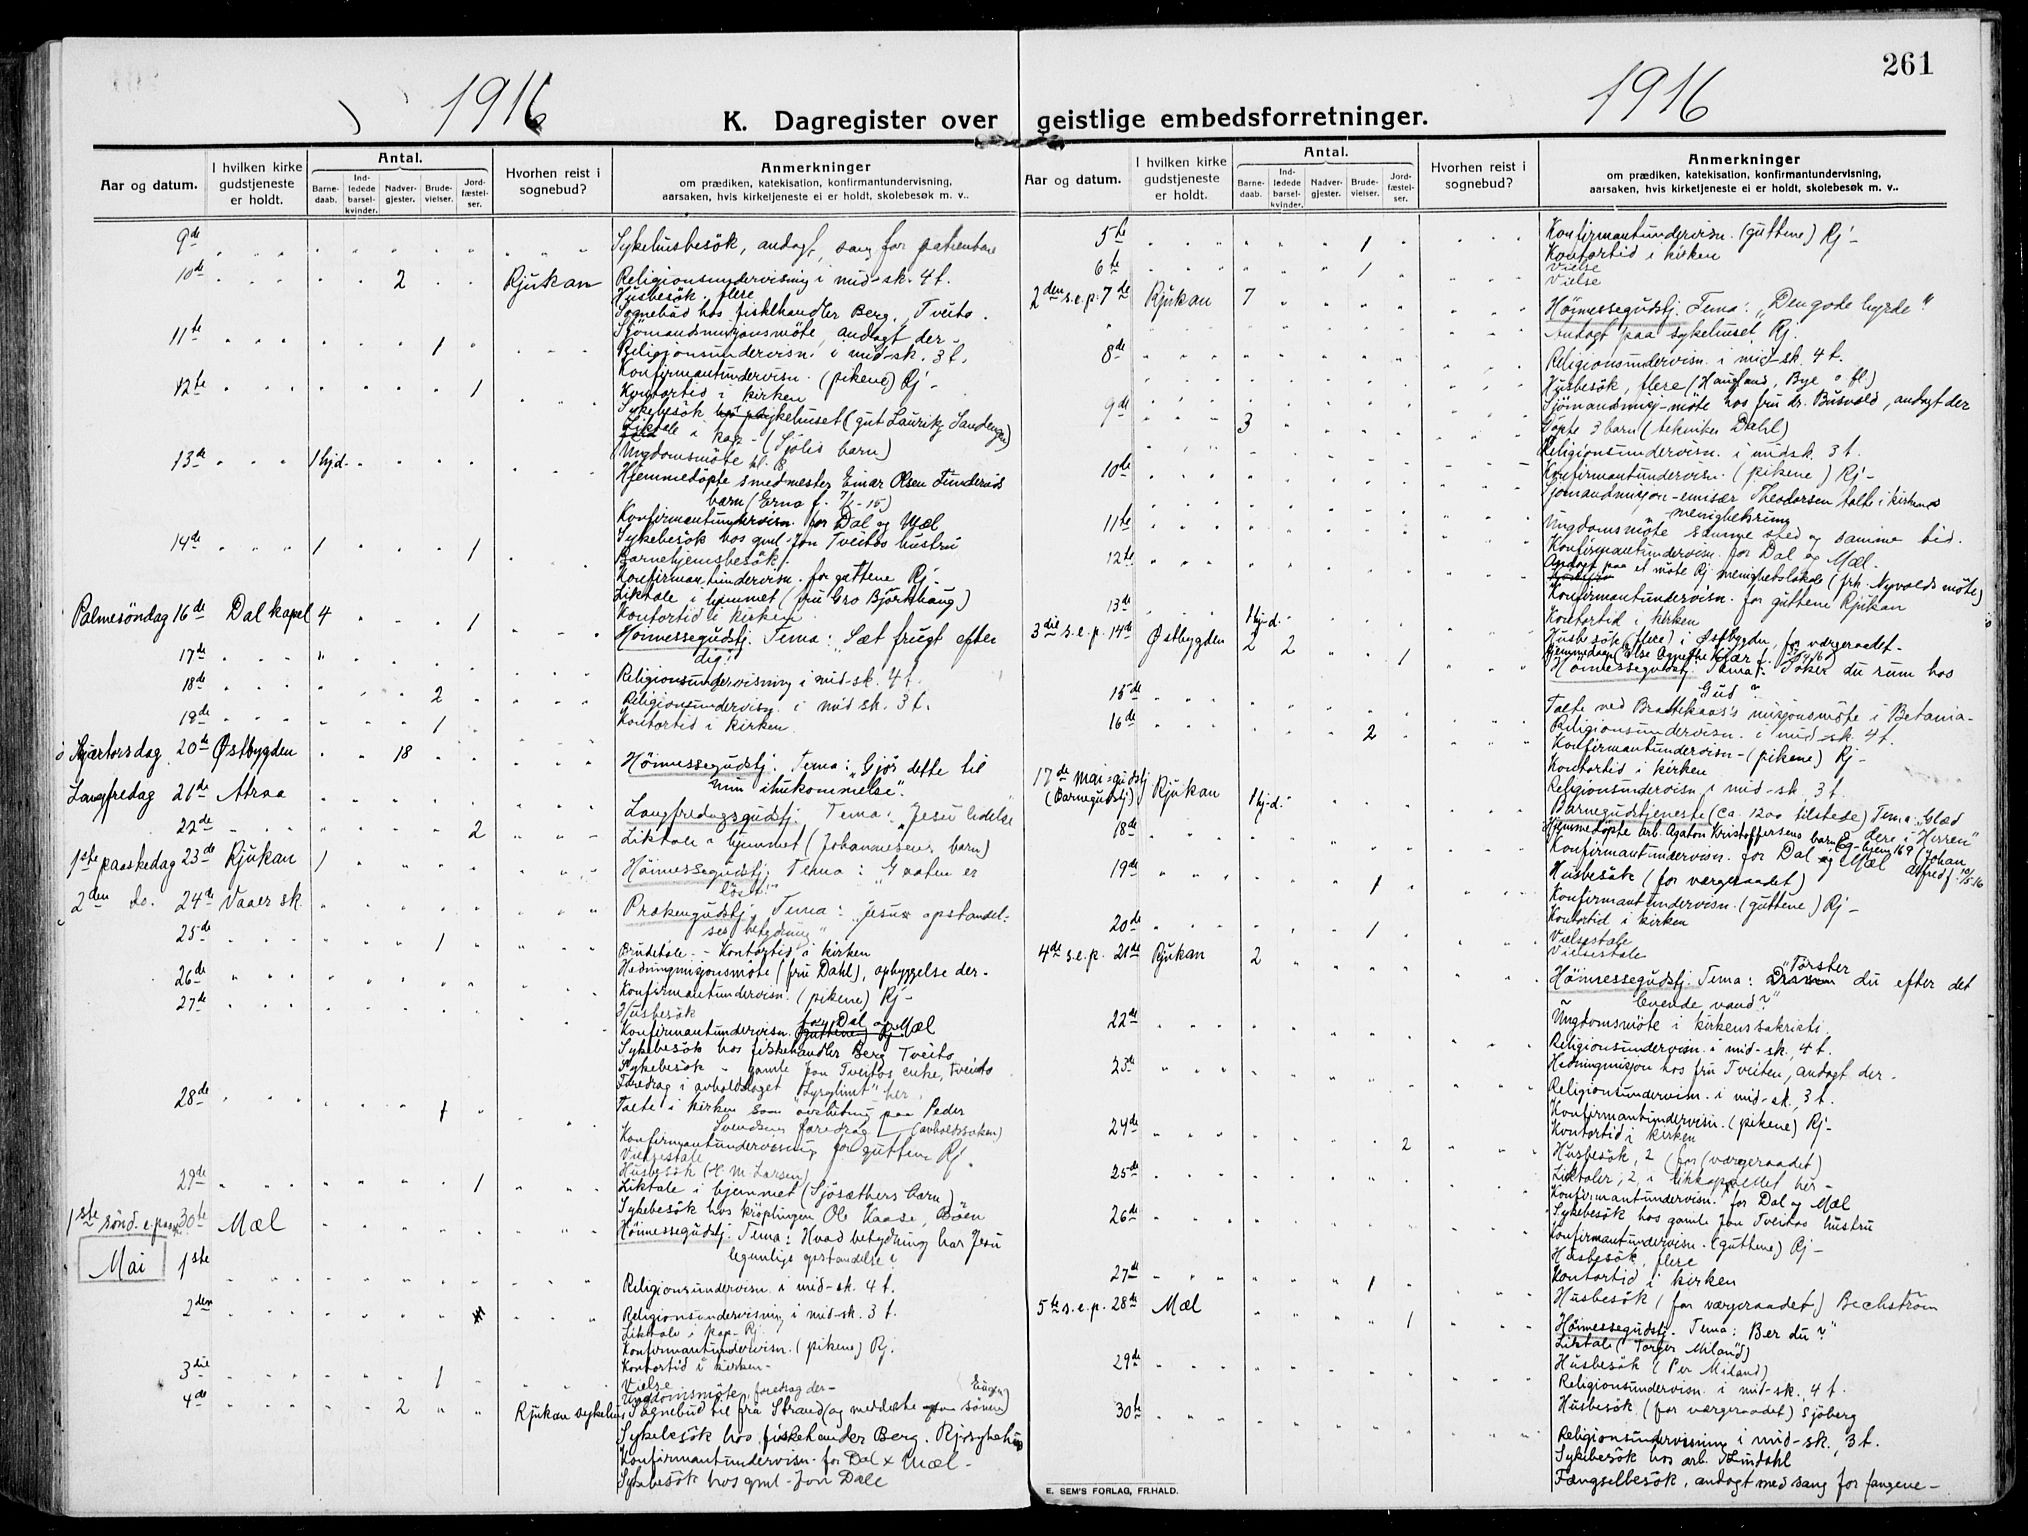 261
1916
1916
K. Dagregister over geistlige embedsforretninger.
Aar og datum.
I hvilken kirke gudstjeneste er holdt.
Antal.
Barne-daab.
Ind-ledede barsel-kvinder.
Nadver-gjester.
Brude-vielser.
Jord-fæstel-ser.
Hvorhen reist i sognebud?
Anmerkninger
om prædiken, katekisation, konfirmantundervisning,
aarsaken, hvis kirketjeneste ei er holdt, skolebesøk m. v..
9de Sykehusbesök, andagt, sang for patientene
10de 2 Rjukan Religionsundervisning i mid-sk. 4 t.
Husbesök, flere
Sognebud hos fiskehandler Berg, Tveito.
Sjömandsmisjonsmöte, andagt der-
11te 1 Religionsundervisn. i mid-sk. 3 t.
Konfirmantundervisn. (pikene) Rj-
12te 1 Kontortid i kirken
Sykebesök sykehuset (gut Lauritz Sandengen)
Liktale i kap- (Sjölis barn)
Ungdomsmöte kl. 8
13de 1 hjd. Hjemmedöpte smedmester Einar Olsen
barn (Erna f.
Konfirmantundervisn. for Dal og Mæl
Sykebesök hos gml. Jon Tveitos hustru
14de 1 1 Barnehjemsbesök.
Konfirmantundervisn. for guttene Rj-
Liktale i hjemmet (fru Gro Björkhaug)
Kontortid i kirken
Palmesöndag 16de Dal kapel 4 1 Höimessegudstj. Tema: Sæt frugt efter
dig!
17de Religionsundervisning i mid-sk. 4 t.
18de 2 Religionsundervisn. i mid sk. 3 t.
18de 1 Kontortid i kirken
Skjærtorsdag 20de Østbygden 18 Höimessegudstj. Tema: "Gjör dette til
min ihukommelse".
Langfredag 21de Atraa Langfredagsgudstj. Tema: "Jesu lidelse
22de 2 Liktale i hjemmet (Johannesens barn)
1ste paaskedag 23de Rjukan 1 Höimessegudstj. Tema: "Graaten er
löst!"
2den do. 24de Vaaer sk. Prækengudstj. Tema: "Jesus opstandel-
ses betydning"
25de 1 Brudetale - Kontortid i kirken
Hedningmisjonsmöte (fru Dahl), opbyggelse der-
26de Konfirmantundervisn. (pikene) Rj-
27de Husbesök
Konfirmantundervisn. for Dal og Mæl
Sykebesök hos fiskehandler Berg Tveito
Sykebesök - gamle Jon Tveitos enke, Tveito
Foredrag i avholdslaget "Lysglimt" her.
28de 1 Talte i kirken som avslutning paa Peder
Svendsens foredrag (avholdssaken)
Konfirmantundervisning for guttene Rj.
Vielsestale
Husbesök (H. M. Larsen)
29de 1 Liktale i hjemmet (Sjösæthers barn)
Sykebesök hos kröplingen Ole Kaase, Böen
1ste sönd. e. paaske 30te Mæl Höimessegudstj. Tema: Hvad betydning har Jesu
legemlige opstandelse?
Mai
1ste Religionsundervisn. i mid-sk. 4 t.
2den Religionsundervisning i mid-sk. 3 t.
Liktale i kap- Rj.
Konfirmantundervisn. (pikene) Rj.
3die 1 Kontortid i kirken-
Vielse
Ungdomsmöte, foredrag der-
4de 2 Rjukan sykehus Sognebud til fru Strand (og meddelte sönnen Einar)
Sykebesök hos fiskehander Berg. Rj. sykehus
Konfirmantundervisn. for Dal x Mæl-
Sykebesök hos gml. Jon Dale
Aar og datum.
I hvilken kirke gudstjeneste er holdt.
Antal.
Barne-daab.
Ind-ledede barsel-kvinder.
Nadver-gjester.
Brude-vielser.
Jord-fæstel-ser.
Hvorhen reist i sognebud?
Anmerkninger
om prædiken, katekisation, konfirmantundervisning,
aarsaken, hvis kirketjeneste ei er holdt, skolebesøk m. v..
5te 1 Konfirmantundervisn. (guttene) Rj-
Kontortid i kirken
6te 1 Vielse
Vielse
2den s.e.p. 7de Rjukan 7 Höimessegudstj. Tema: "Den gode hyrde"
Andagt paa sykehuset, Rj.
8de Religionsundervisn. i mid-sk. 4 t.
Husbesök, flere (Haugland, Bye o fl.)
9de 3 Sjömandsmisj-möte hos fru dr. Busvold, andagt der
Döpte 3 barn (tekniker Dahl)
Religionsundervisn. i midsk. 3 t.
10de Konfirmantundervisn. (pikene) Rj-
Sjömandsmisjon-emisær Theodorsen talte i kirkens
menighetsring
11te Ungdomsmöte samme sted og samme tid.
Konfirmantundervisn. for Dal og Mæl-
12te Andagt paa et möte Rj menighetslokale (frk. Nyvolds möte)
Konfirmantundervisn. for guttene Rjukan
13de 1 hj-d. Kontortid i kirken
Husbesök (flere) i Østbygden, for værgeraadet-
Hjemmedaap (Else Agnethe Kjær f.
3die s.e.p. 14de Østbygden 2 2 1 Höimessegudstj. Tema: Söker du rum hos
Gud?
15de Talte ved Brattekaas's misjonsmöte i Betania-
Religionsundervisn. i mid-sk. 4 t.
16de 2 Konfirmantundervisn- (pikene) Rj-
Kontortid i kirken
Religionsundervisn. i mid-sk. 3 t.
17de Mai-gudstj (Barnegudstj) Rjukan 1 hj-d. Barnegudstjeneste (ca. 1200 tilstede) Tema: "Glæd
dere i Herren"
Hjemmedöpte arb. Agaton Kristoffersens barn, Eg-hjem 169 (Johan
Alfred f. 10/5-16
18de Konfirmantundervisn. for Dal og Mæl
19de 1 Husbesök (for værgeraadet)
Konfirmantundervisn. (guttene) Rj-
Kontortid i kirken
20de 1 Vielsestale
Vielsestale
4de s.e.p. 21de Rjukan 2 Höimessegudstj. Tema: "Törster du efter det
levende vand?"
Ungdomsmöte i kirkens sakristi.
22de Religionsundervisn. i mid-sk. 4 t.
Hedningmisjon hos fru Tveiten, andagt der-
23de Religionsundervisn. i mid-sk. 3 t.
Konfirmantundervisn. (pikene) Rj-
Kontortid i kirken
24de 2 Husbesök, 2 (for (værgeraadet)
Liktaler, 2, i likkapellet her-
25de Konfirmantundervisn. for Dal og Mæl
Sykebesök hos gamle Jon Tveitos hustru
26de Konfirmantundervisn. (guttene) Rj-
Husbesök, flere
27de 1 Kontortid i kirken
Husbesök (for værgeraadet) Bechström
5te s.e.p. 28de Mæl 1 Höimessegudstj. Tema: Ber du?"
Liktale (Torger Miland)
29de Husbesök (Per Miland)
Religionsundervisn. i mid-sk. 4 t.
Husbesök (for værgeraadet) Sjöberg
30te Religionsundervisning i mid-sk. 3 t.
Sykebesök hos arb. Lindahl
Fængselbesök, andagt med sang for fangene-
E. SEM'S FORLAG, FR.HALD.